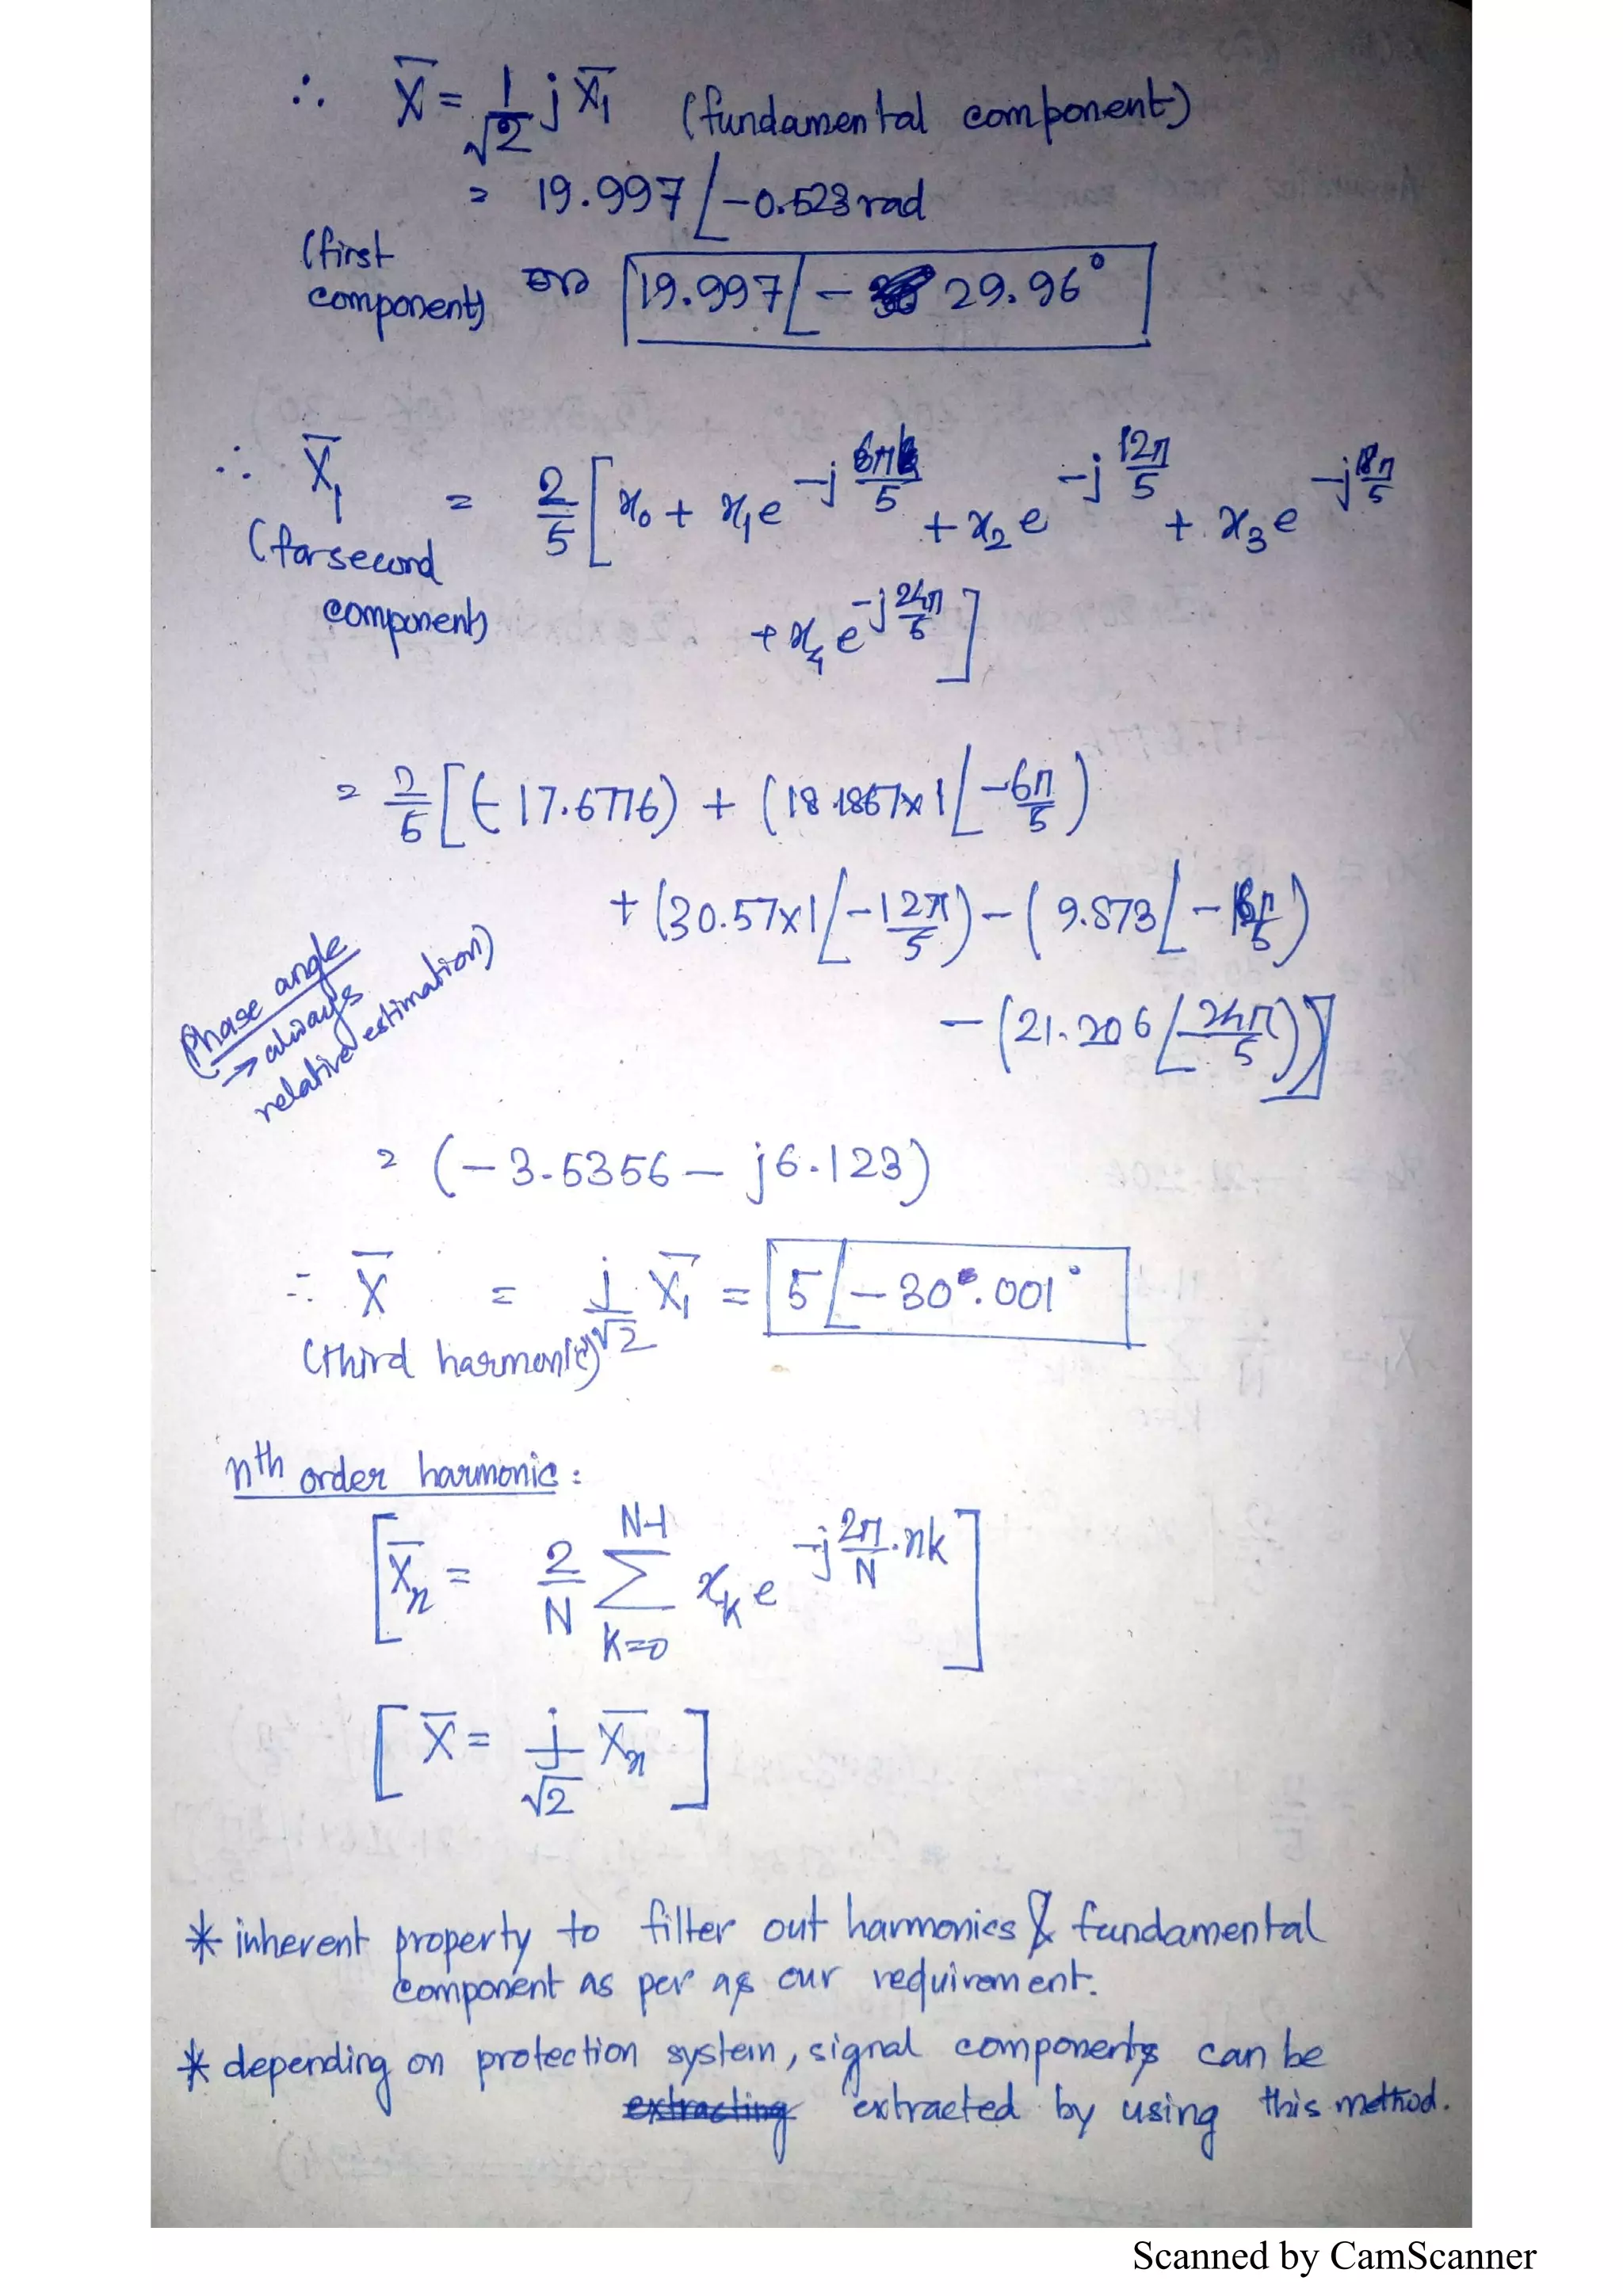 ∴ X̄ = 1/√2 j X̄₁ (fundamental component)
= 19.997 ∠-0.523 rad
(first component) or 19.997 ∠- 29.96°
∴ X̄₁ (for second component) = 2/5 [x₀ + x₁e^(-j 6π/5) + x₂e^(-j 12π/5) + x₃e^(-j 18π/5)
+ x₄e^(-j 24π/5)]
= 2/5 [(-17.6776) + (18.1867×1∠-6π/5)
+ (30.57×1∠-12π/5) - (9.873∠-18π/5)
- (21.206∠24π/5)]
(Phase angle
→ always
relative estimation)
= (-3.5356 - j6.123)
∴ X̄ = j/√2 X̄₁ = 5∠-30.001°
(third harmonic)
nth order harmonic:
[X̄ₙ = 2/N Σ_{K=0}^{N-1} x_K e^(-j 2π/N · nk)]
[X̄ = j/√2 X̄ₙ]
* inherent property to filter out harmonics & fundamental
component as per as our requirement.
* depending on protection system, signal components can be
extracting extracted by using this method.
Scanned by CamScanner